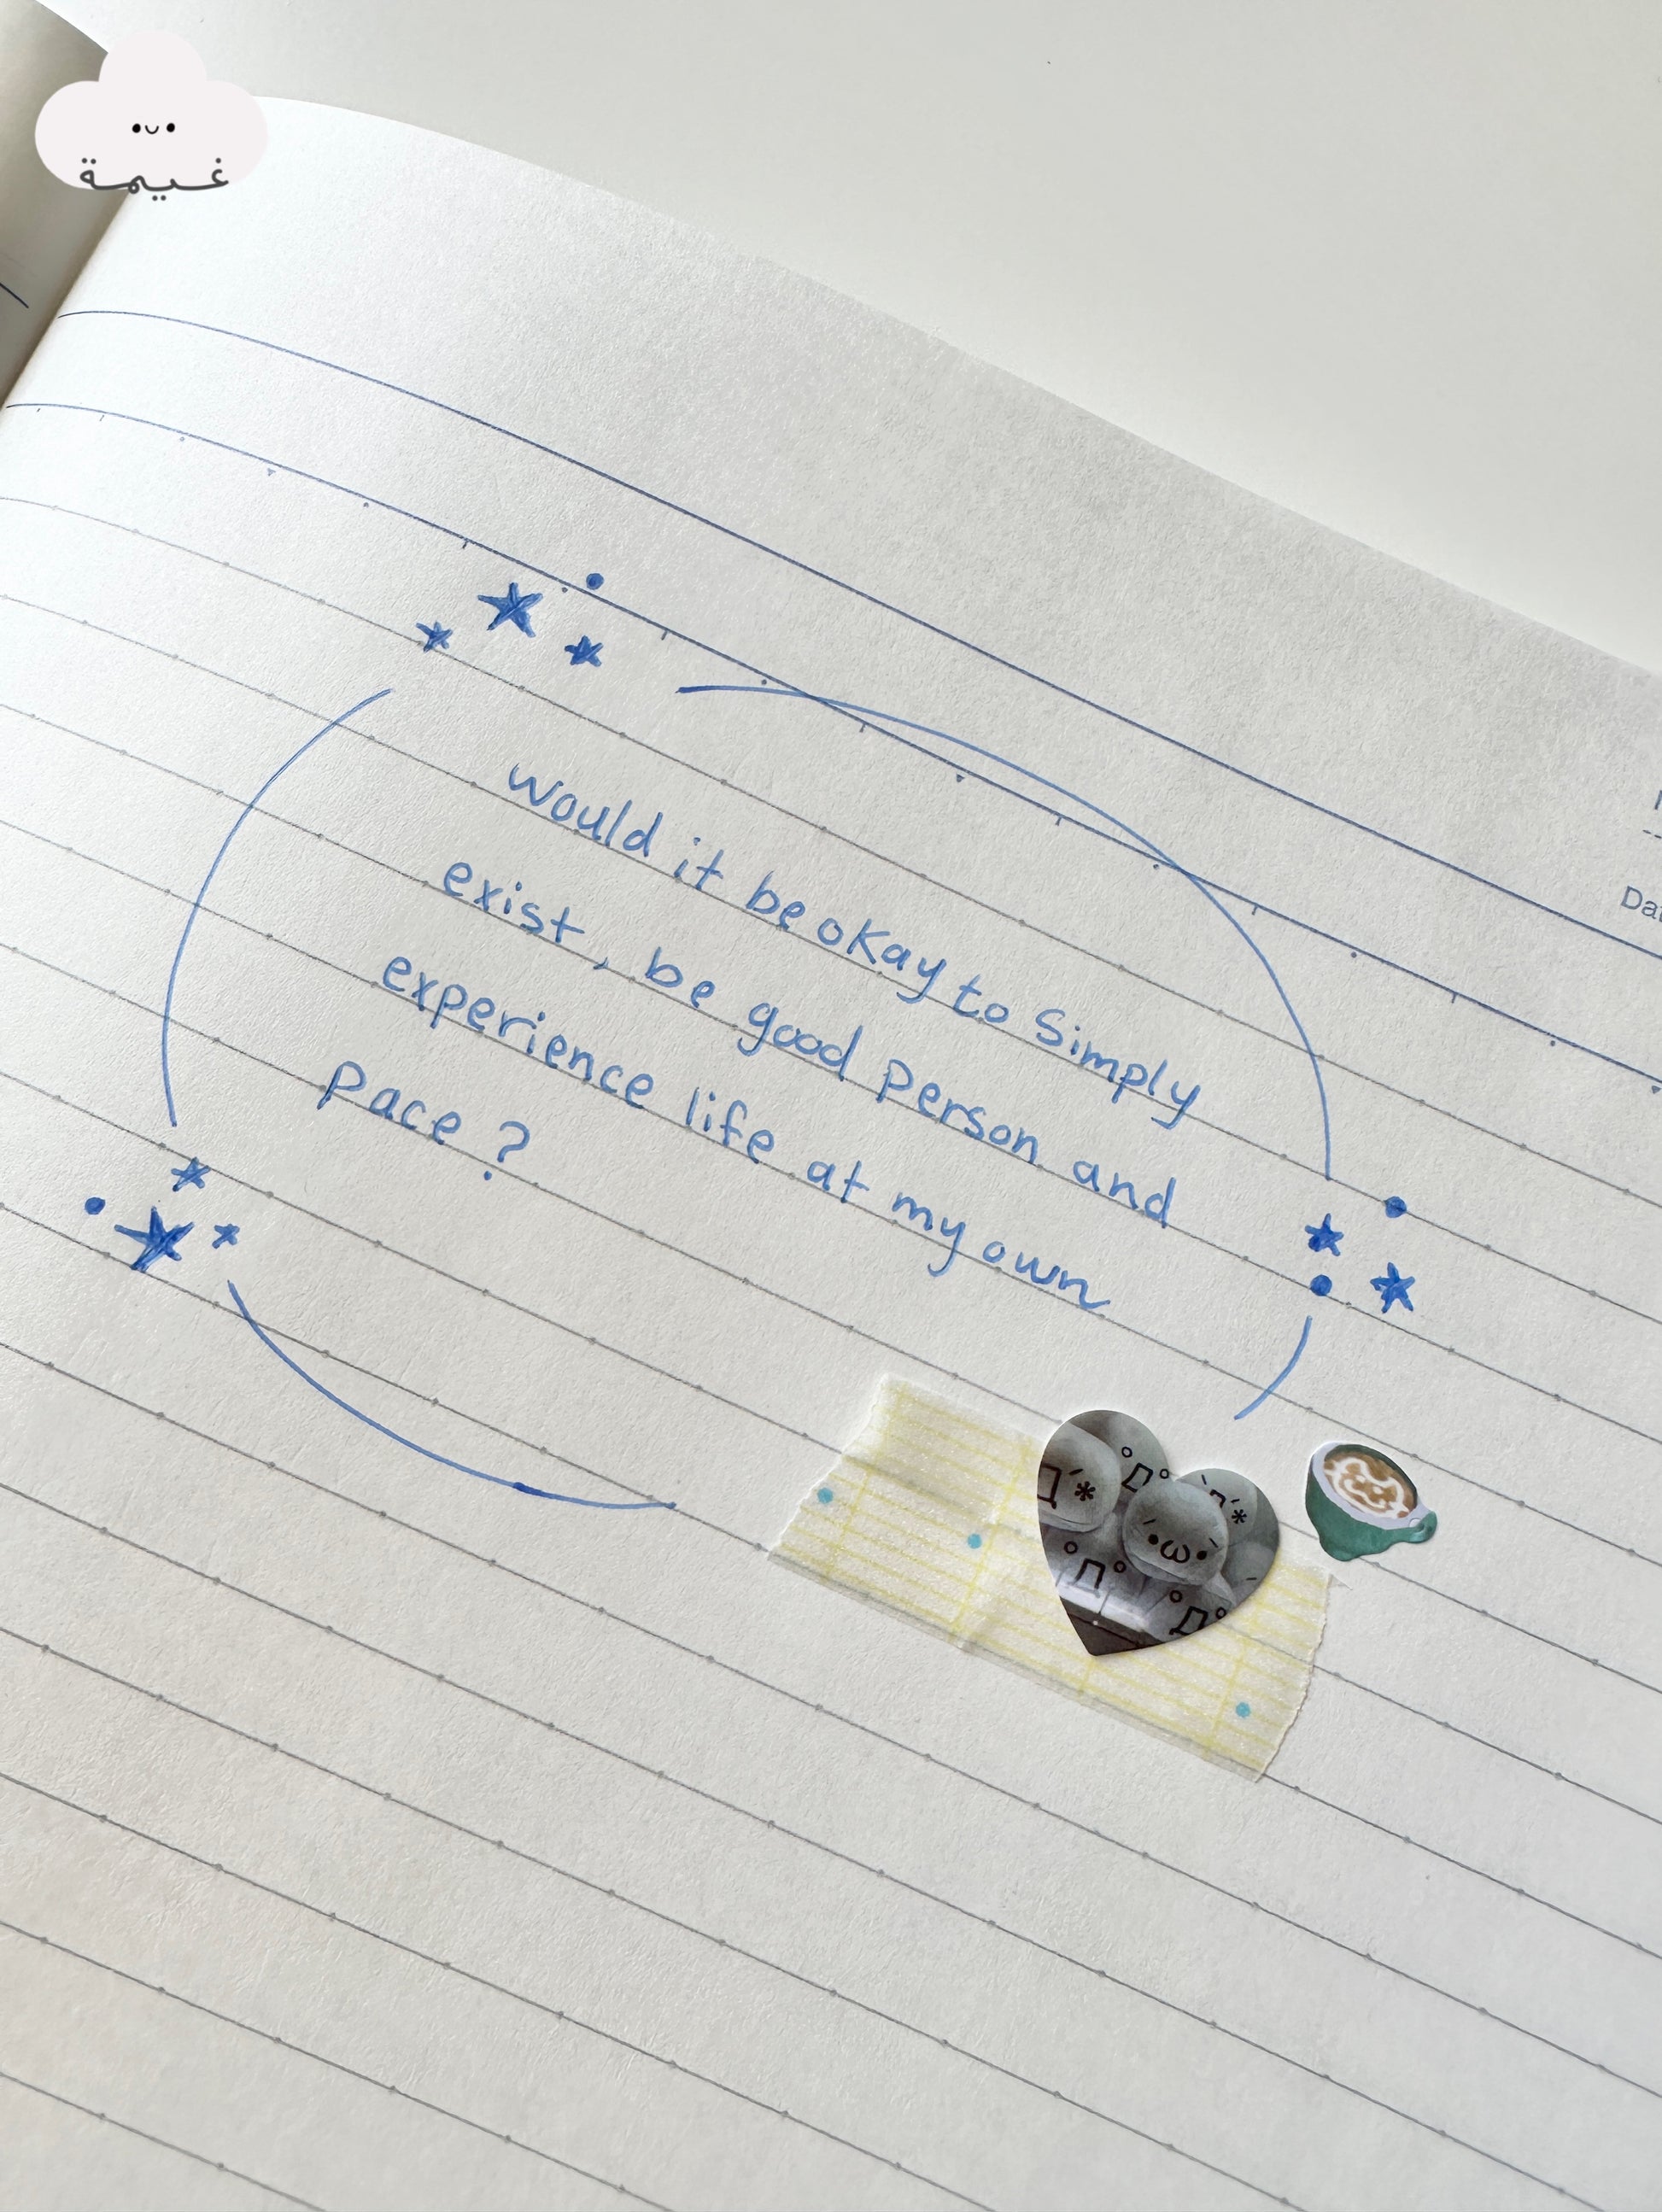 غيمة
would it be okay to Simply
exist, be good person and
experience life at my own
pace ?
°Д°
Д´*
•ω•
°Д°
°Д°